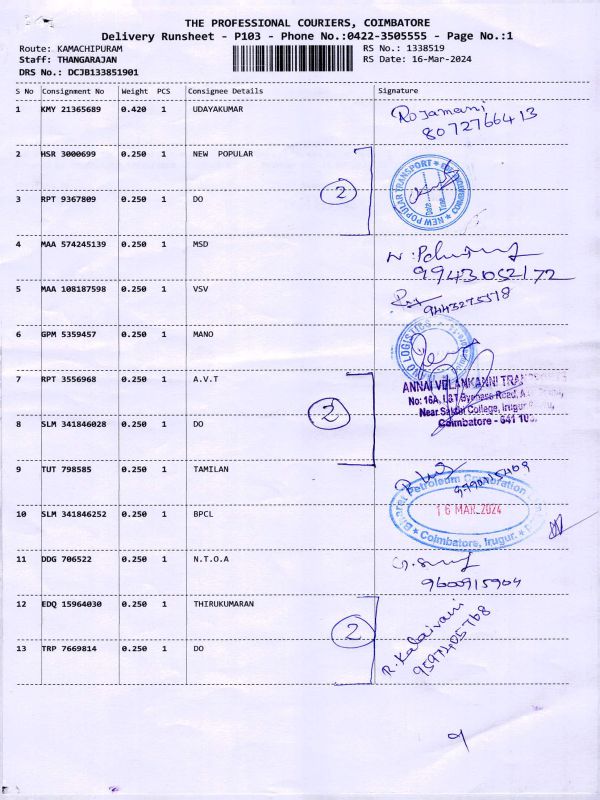 THE PROFESSIONAL COURIERS, COIMBATORE
Delivery Runsheet - P103 - Phone No.:0422-3505555 - Page No.:1
Route: KAMACHIPURAM RS No.: 1338519
Staff: THANGARAJAN RS Date: 16-Mar-2024
DRS No.: DCJB133851901
S No Consignment No Weight PCS Consignee Details Signature
1 KMY 21365689 0.420 1 UDAYAKUMAR Rojamani
8072766413
2 HSR 3000699 0.250 1 NEW POPULAR
2
NEW POPULAR TRANSPORT
Date
Time
3 RPT 9367809 0.250 1 DO
4 MAA 574245139 0.250 1 MSD
9943052172
5 MAA 108187598 0.250 1 VSV
9443275518
6 GPM 5359457 0.250 1 MANO
LOGISTICS
7 RPT 3556968 0.250 1 A.V.T
ANNAI VELANKANNI
No: 16A, L&T Bypass Road,
2
Near College, Irugur
Coimbatore - 641
8 SLM 341846028 0.250 1 DO
9 TUT 798585 0.250 1 TAMILAN
10 SLM 341846252 0.250 1 BPCL
Bharat Petroleum Corporation
16 MAR 2024
Coimbatore, Irugur.
11 DDG 706522 0.250 1 N.T.O.A
9600915904
12 EDQ 15964030 0.250 1 THIRUKUMARAN
2
R. Kalaivani
9597405768
13 TRP 7669814 0.250 1 DO